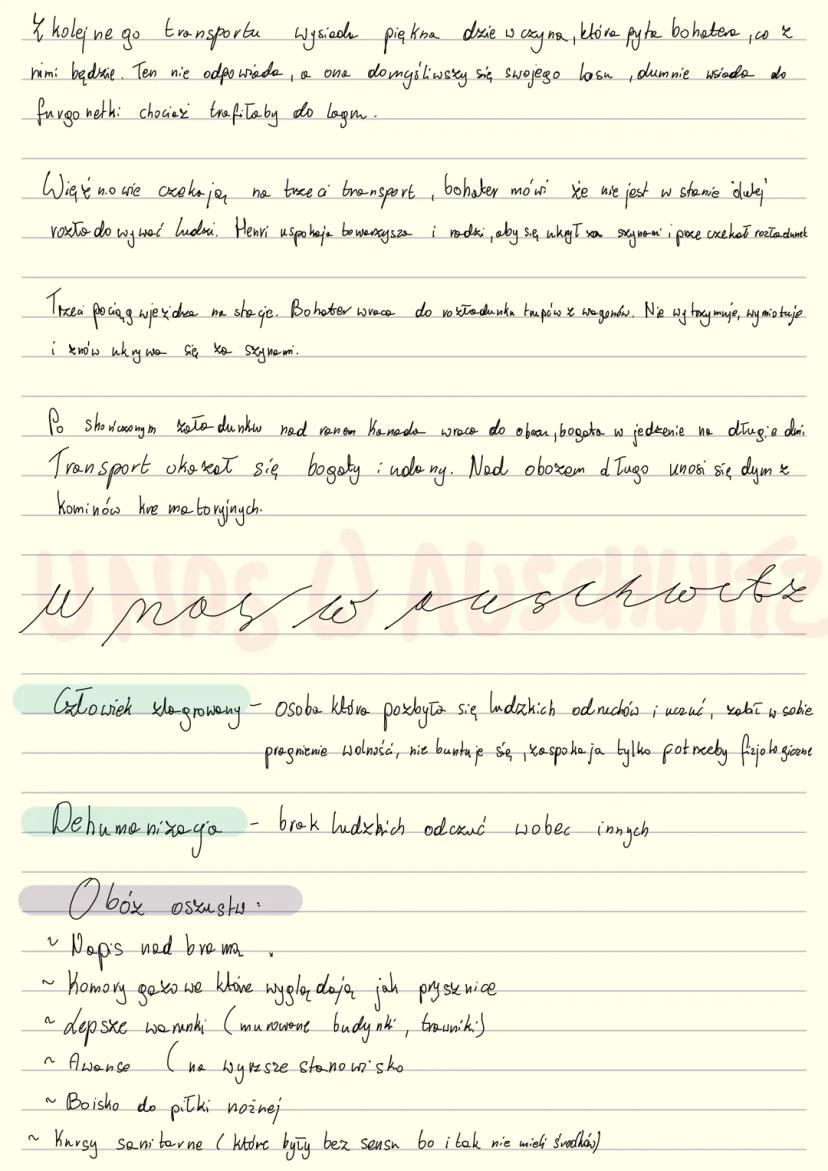 Z kolejnego transportu wysiada piękna dziewczyna, która pyta bohatera, co z
nimi będzie. Ten nie odpowiada, a ona domyśliwszy się swojego losu, dumnie wsiada do
furgonetki chociaż trafiłaby do łagru.
Więźniowie czekają na trzeci transport, bohater mówi że nie jest w stanie dalej
rozładowywać ludzi. Henri uspokaja towarzysza i radzi, aby się ukrył za szynami i przeczekał rozładunek
Trzeci pociąg wjeżdża na stację. Bohater wraca do rozładunku trupów z wagonów. Nie wytrzymuje, wymiotuje
i znów ukrywa się za szynami.
Po skończonym załadunku nad ranem Kanada wraca do obozu, bogata w jedzenie na długie dni.
Transport okazał się bogaty i udany. Nad obozem długo unosi się dym z
kominów krematoryjnych.
U NAS W AUSCHWITZ
U nas w auschwitz
Człowiek zlagrowany - osoba która pozbyła się ludzkich odruchów i uczuć, zabił w sobie
pragnienie wolność, nie buntuje się, zaspokaja tylko potrzeby fizjologiczne
Dehumanizacja - brak ludzkich odczuć wobec innych
Obóz oszustw:
~ Napis nad bramą.
~ Komory gazowe które wyglądają jak prysznice
~ Lepsze warunki (murowane budynki, trawniki)
~ Awanse (na wyższe stanowisko
~ Boisko do piłki nożnej
~ Kursy sanitarne (które były bez sensu bo i tak nie mieli środków)